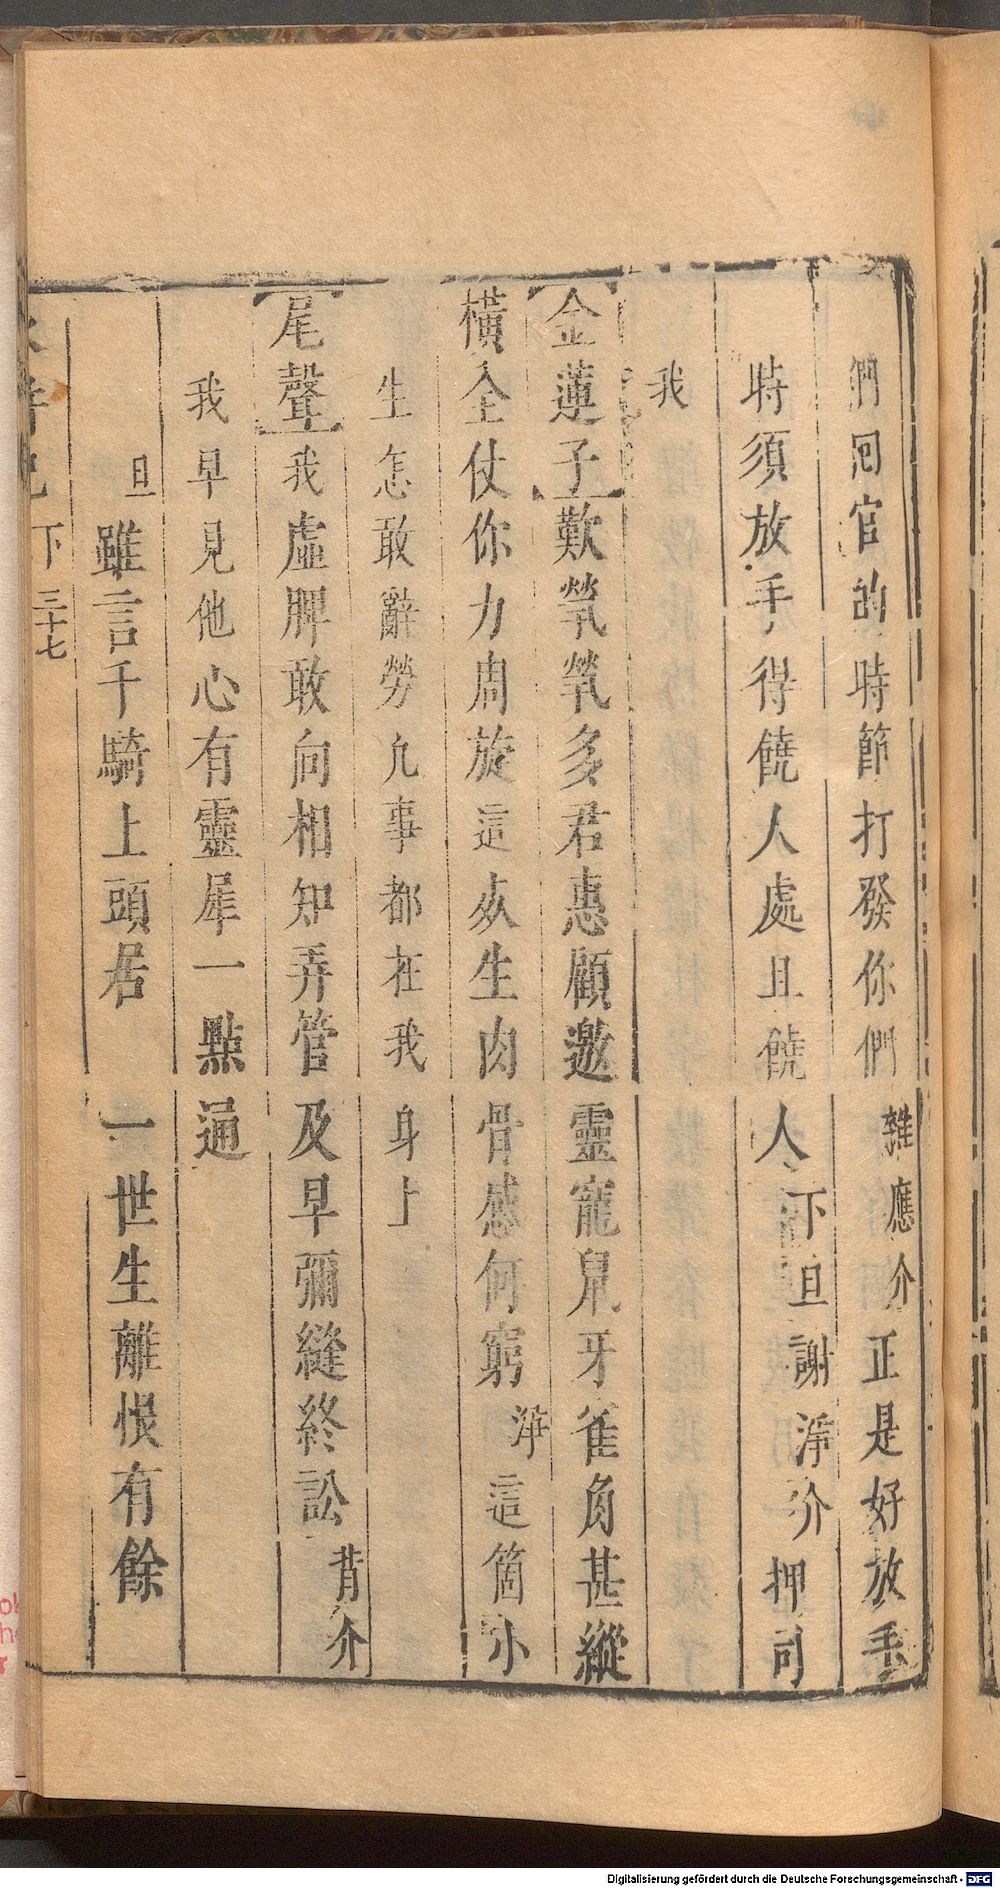 們囘官的時節打發你們雜應介正是好放手
時須放手得饒人處且饒人下旦謝淨介押司
我
金蓮子歎煢煢多君惠顧邀靈寵鼠牙雀角甚縱
橫全仗你力周旋這夾生肉骨感何窮淨這箇小
生怎敢辭勞凣事都在我身上
尾聲我虛脾敢向相知弄管及早彌縫終訟背介
我早見他心有靈犀一點通
旦雖言千騎上頭居一世生離恨有餘
記下 三十七
Digitalisierung gefördert durch die Deutsche Forschungsgemeinschaft - DFG